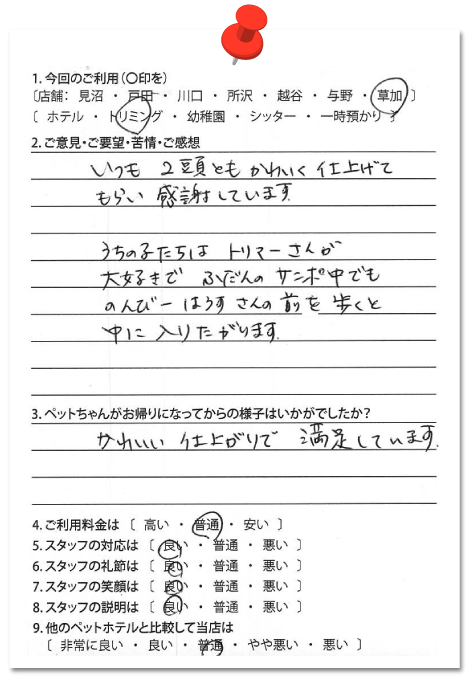 1. 今回のご利用(〇印を)
〔店舗： 見沼 ・ 戸田 ・ 川口 ・ 所沢 ・ 越谷 ・ 与野 ・ 草加 〕
〔 ホテル ・ トリミング ・ 幼稚園 ・ シッター ・ 一時預かり 〕
2. ご意見・ご要望・苦情・ご感想
いつも 2頭とも かわいく 仕上げて
もらい 感謝しています.
うちの子たちは トリマーさんが
大好きで ふだんの サンポ中でも
のんびーはうす さんの 前を 歩くと
中に 入りたがります.
3. ペットちゃんがお帰りになってからの様子はいかがでしたか？
かわいい 仕上がりで 満足しています.
4. ご利用料金は 〔 高い ・ 普通 ・ 安い 〕
5. スタッフの対応は 〔 良い ・ 普通 ・ 悪い 〕
6. スタッフの礼節は 〔 良い ・ 普通 ・ 悪い 〕
7. スタッフの笑顔は 〔 良い ・ 普通 ・ 悪い 〕
8. スタッフの説明は 〔 良い ・ 普通 ・ 悪い 〕
9. 他のペットホテルと比較して当店は
〔 非常に良い ・ 良い ・ 普通 ・ やや悪い ・ 悪い 〕